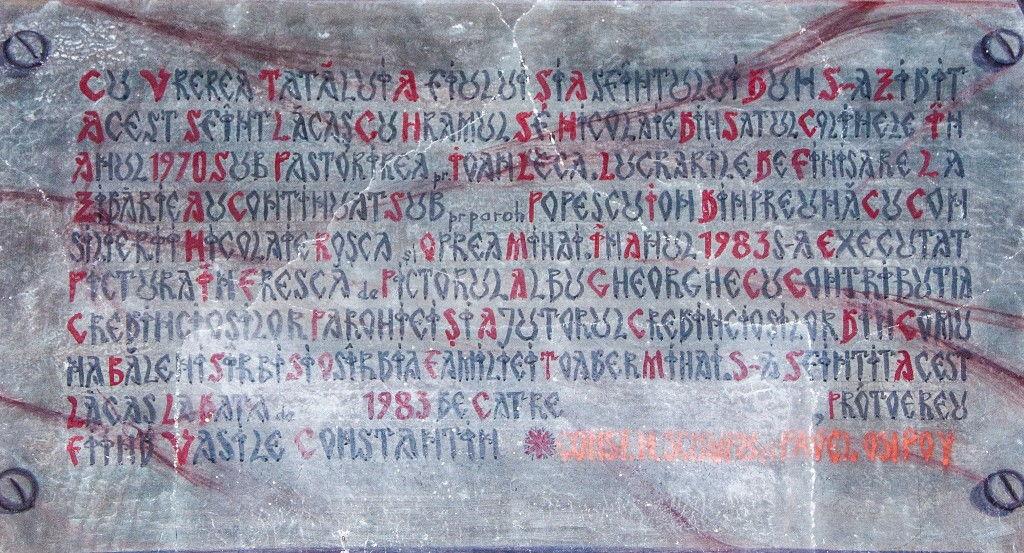 CU VREREA TATĂLUI A FIULUI ȘI A SFÎNTULUI DUH S-A ZIDIT
ACEST SFÎNT LĂCAȘ CU HRAMUL SF NICOLAIE DIN SATUL COLINELE ÎN
ANUL 1970 SUB PASTORIREA pr. IOAN ZECA. LUCRARILE DE FINISARE LA
ZIDĂRIE AU CONTINUAT SUB pr paroh POPESCU ION DINPREUNĂ CU CON
SILIERII NICOLAIE ROȘCA și OPREA MIHAI. ÎN ANUL 1983 S-A EXECUTAT
PICTURA ÎN FRESCA de PICTORUL ALBU GHEORGHE CU CONTRIBUTIA
CREDINCIOSILOR PAROHIEI ȘI AJUTORUL CREDINCIOSILOR DIN COMU
NA BĂLENI SIRBI SI OSÎRDIA FAMILIEI TOADER MIHAI. S-A SFINTIT ACEST
LĂCAS LA DATA de 1983 DE CATRE , PROTOEREU
FIIND VASILE CONSTANTIN